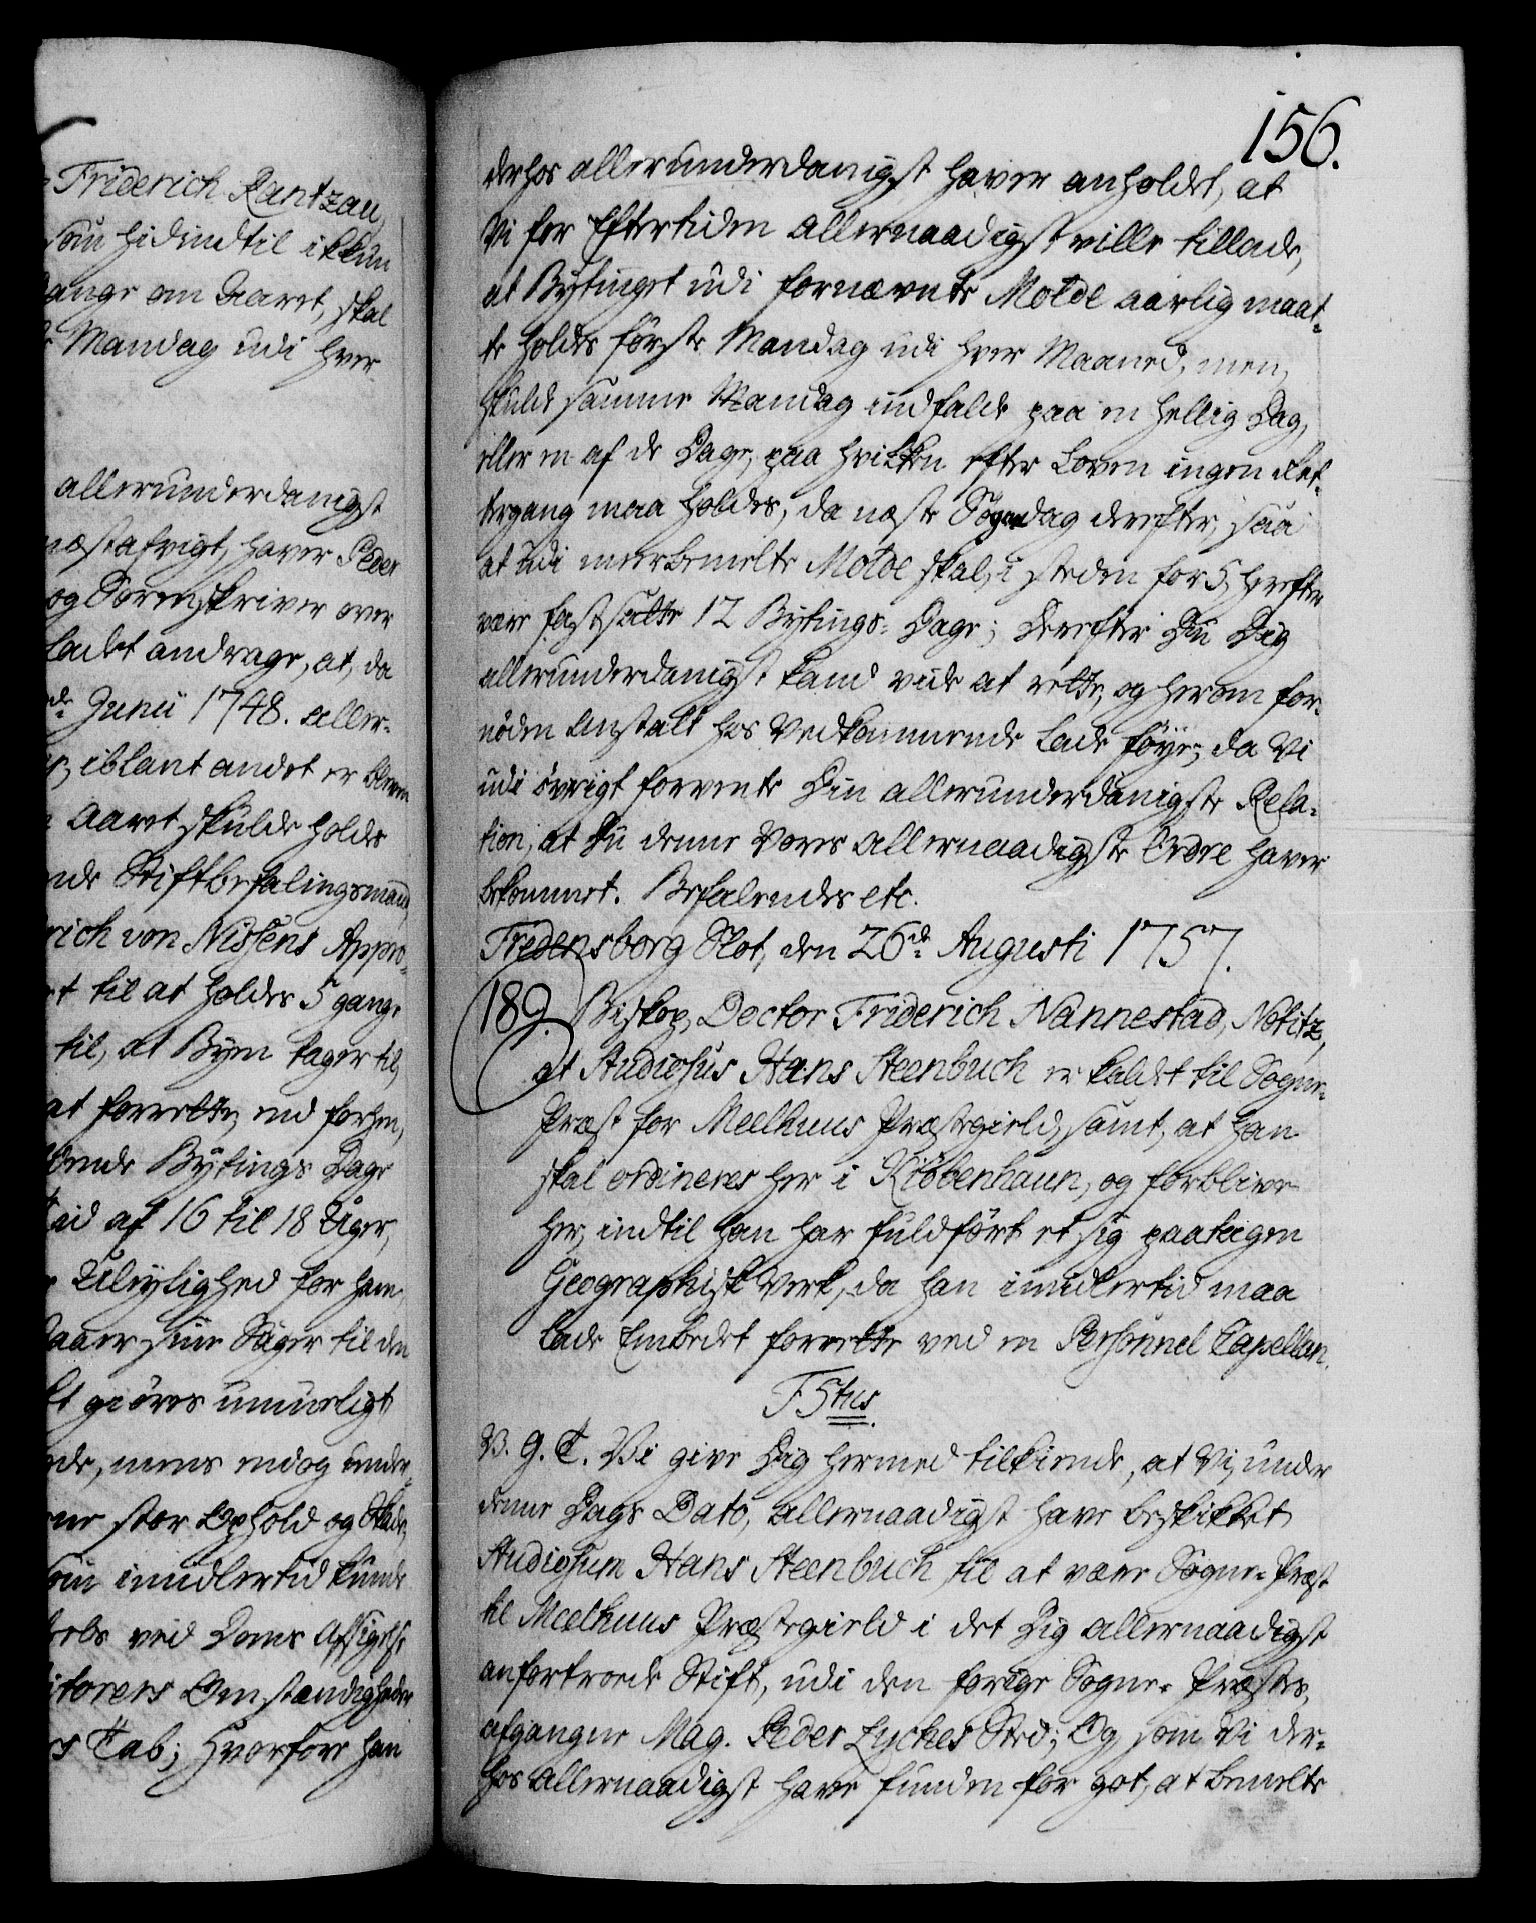 Friderich Rantzau,
som hidindtil ikkun
gange om Aaret, skal
Mandag udi hver
allerunderdanigst
næstafvigt, haver Peder
og Sorenskriver over
ladet andrage, at, da
Junii 1748. aller-
iblant andet er bleven
Aaret skulde holdes
Stiftbefalingsmand
rich von Nissens Appro-
til at holdes 5 gange
til, at Byen tager til,
at forrette, end forhen,
Bytings Dage
Tid af 16 til 18 Uger,
Uleylighed for ham,
sine Sager til den
giöres umueligt
mens endog under-
stor Ophold og Skade,
som imidlertid kunde
ved Doms Afsigelse
itorers Omstændigheder
Tab; Hvorfore han
156.
derhos allerunderdanigst haver anholdet, at
Vi for Eftertiden allernaadigst ville tillade,
at Bytinget udi fornævnte Molde aarlig maat-
te holdes förste Mandag udi hver Maaned, men,
skulde samme Mandag indfalde paa en hellig Dag,
eller en af de Dage, paa hvilken efter Loven ingen Ret-
tergang maa holdes, da næste Sögnedag derefter, saa
at udi meerbemelte Molde skal, i steden for 5, herefter
være fastsatte 12 Bytings-Dage; Derefter Du Dig
allerunderdanigst kand vide at rette, og herom for-
nöden Anstalt hos Vedkommende lade föye, da Vi
udi övrigt forvente Din allerunderdanigste Rela-
tion, at Du denne Vores allernaadigste Ordre haver
bekommet. Befalendes etc.
Fredensborg Slot, den 26de Augusti 1757.
189. Biskop, Doctor Friderich Nannestad, Notitz,
at Studiosus Hans Steenbuch er kaldet til Sogne-
Præst for Meelhuus Præstegield, samt, at han
skal ordineres her i Kiöbenhaun, og forblive
her, indtil han har fuldfört et sig paatagen
Geographisk Verk, da han imidlertid maa
lade Embedet forrette ved en Personnel Capellan.
F 5tus
V. G. T. Vi give Dig hermed tilkiende, at Vi, under
denne Dags Dato, allernaadigst have beskikket
Studiosum Hans Steenbuch til at være Sogne-Præst
til Meelhuus Præstegield i det Dig allernaadigst
anfortroede Stift, udi den forige Sogne-Præstes,
afgangne Mag. Peder Lyches Sted; Og som Vi der-
hos allernaadigst have funden for got, at bemelte